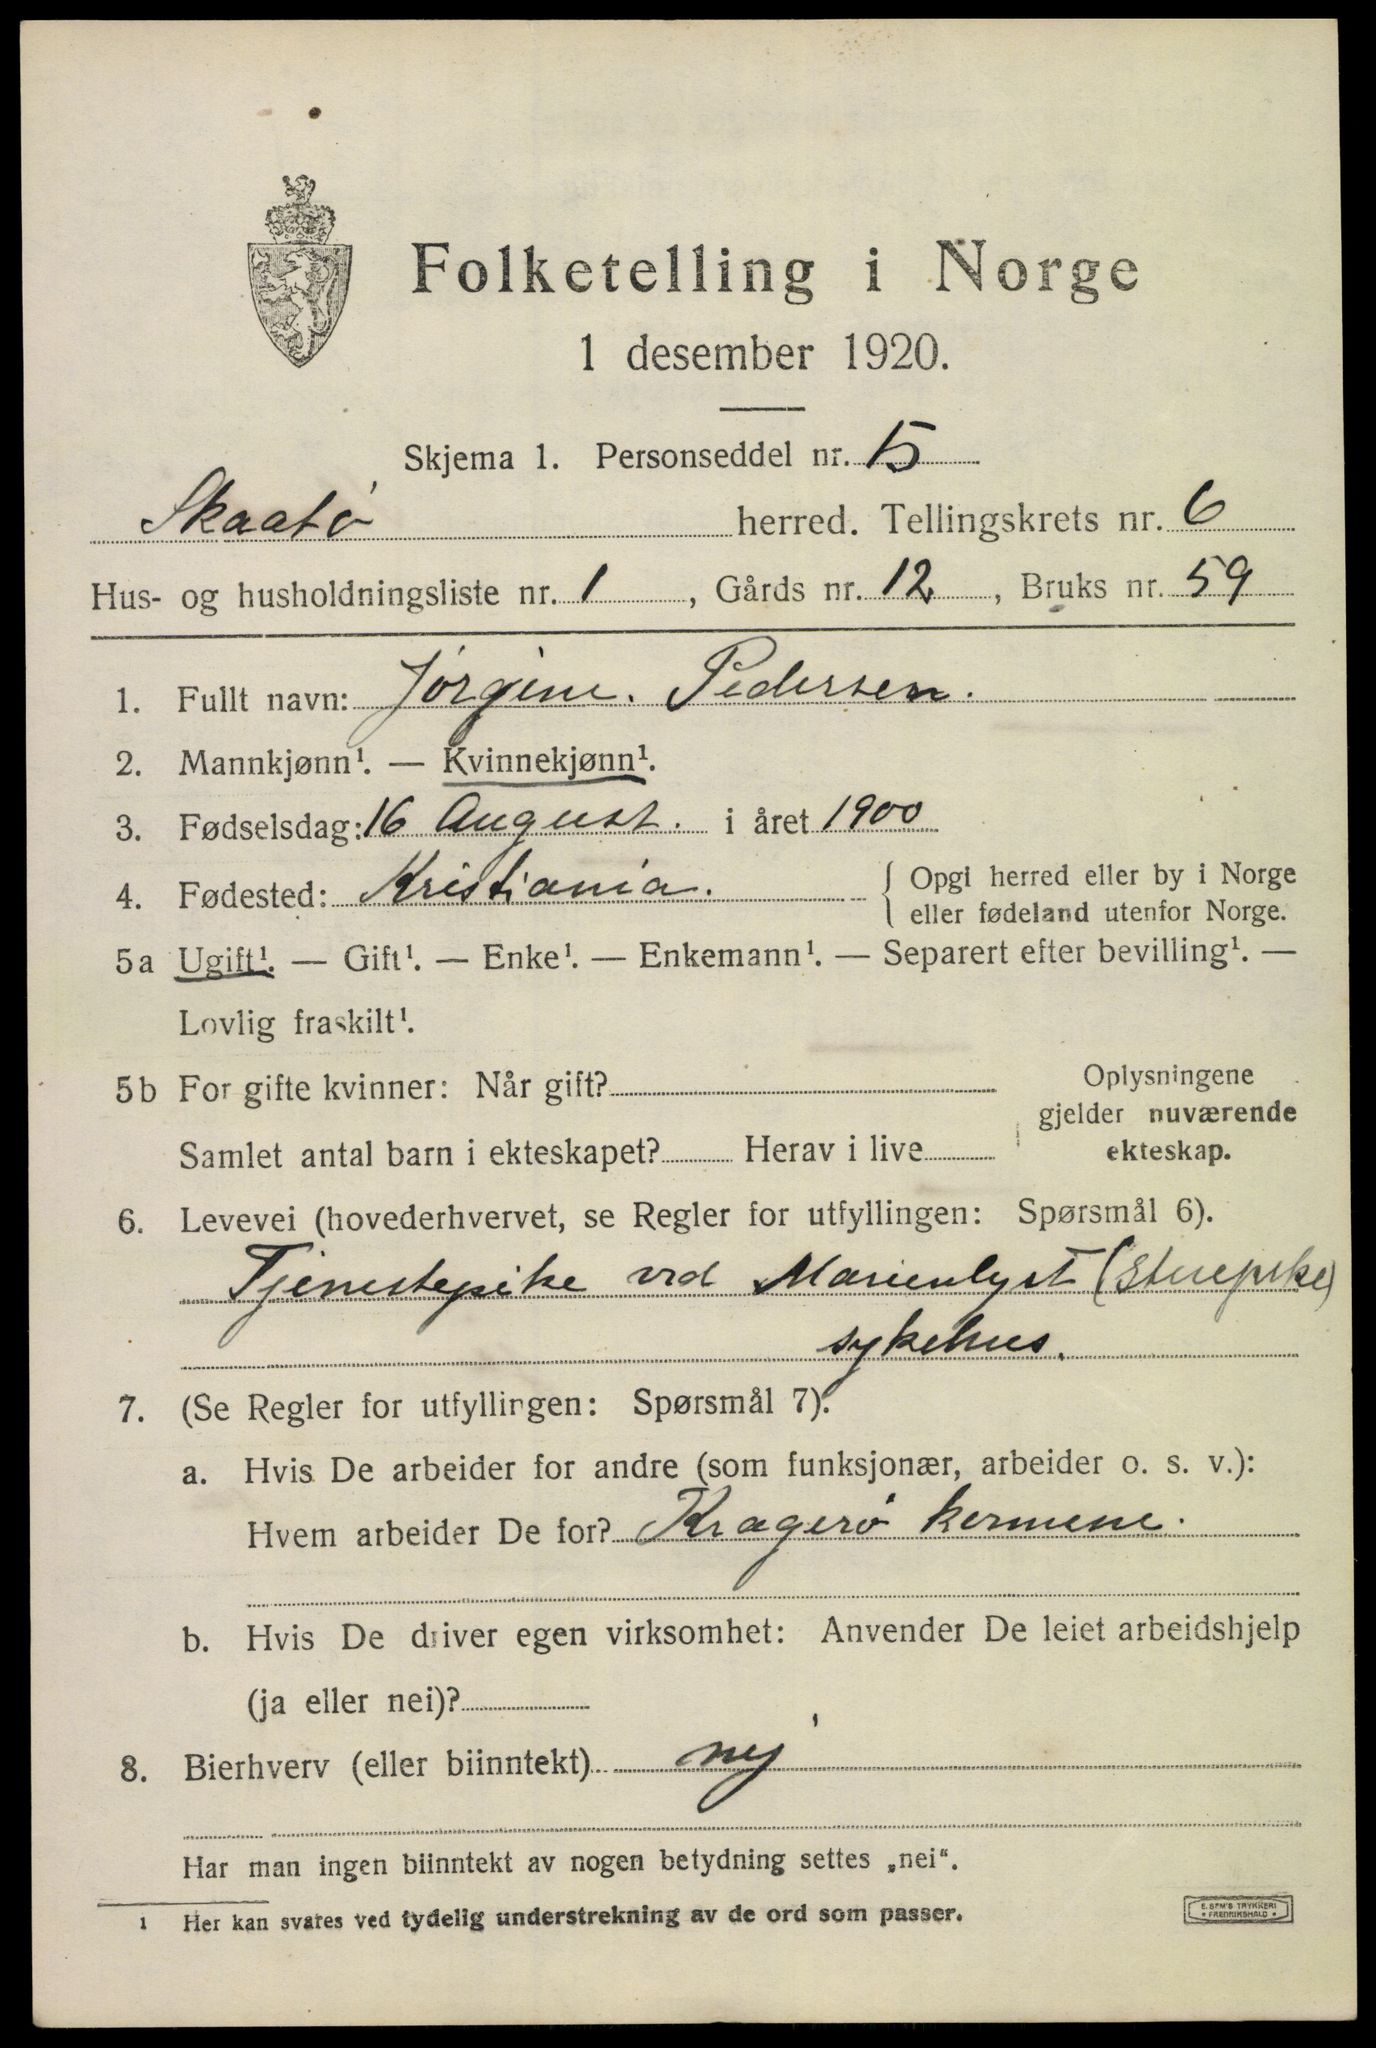 Folketelling i Norge
1 desember 1920.
Skjema 1. Personseddel nr. 5
Skaatö herred. Tellingskrets nr. 6
Hus- og husholdningsliste nr. 1, Gårds nr. 12, Bruks nr. 59
1. Fullt navn: Jörgine. Pedersen.
2. Mannkjønn¹. — Kvinnekjønn¹.
3. Fødselsdag: 16 August. i året 1900
4. Fødested: Kristiania. { Opgi herred eller by i Norge
eller fødeland utenfor Norge.
5a Ugift¹. — Gift¹. — Enke¹. — Enkemann¹. — Separert efter bevilling¹. —
Lovlig fraskilt¹.
5b For gifte kvinner: Når gift?
Samlet antal barn i ekteskapet? Herav i live
Oplysningene
gjelder nuværende
ekteskap.
6. Levevei (hovederhvervet, se Regler for utfyllingen: Spørsmål 6).
Tjenestepike ved Marienlyst (Stuepike)
sykehus.
7. (Se Regler for utfyllingen: Spørsmål 7).
a. Hvis De arbeider for andre (som funksjonær, arbeider o. s. v.):
Hvem arbeider De for? Kragerö
b. Hvis De driver egen virksomhet: Anvender De leiet arbeidshjelp
(ja eller nei)?
8. Bierhverv (eller biinntekt) nej
Har man ingen biinntekt av nogen betydning settes „nei“.
1 Her kan svares ved tydelig understrekning av de ord som passer.
E. SEM'S TRYKKERI
* FREDRIKSHALD *